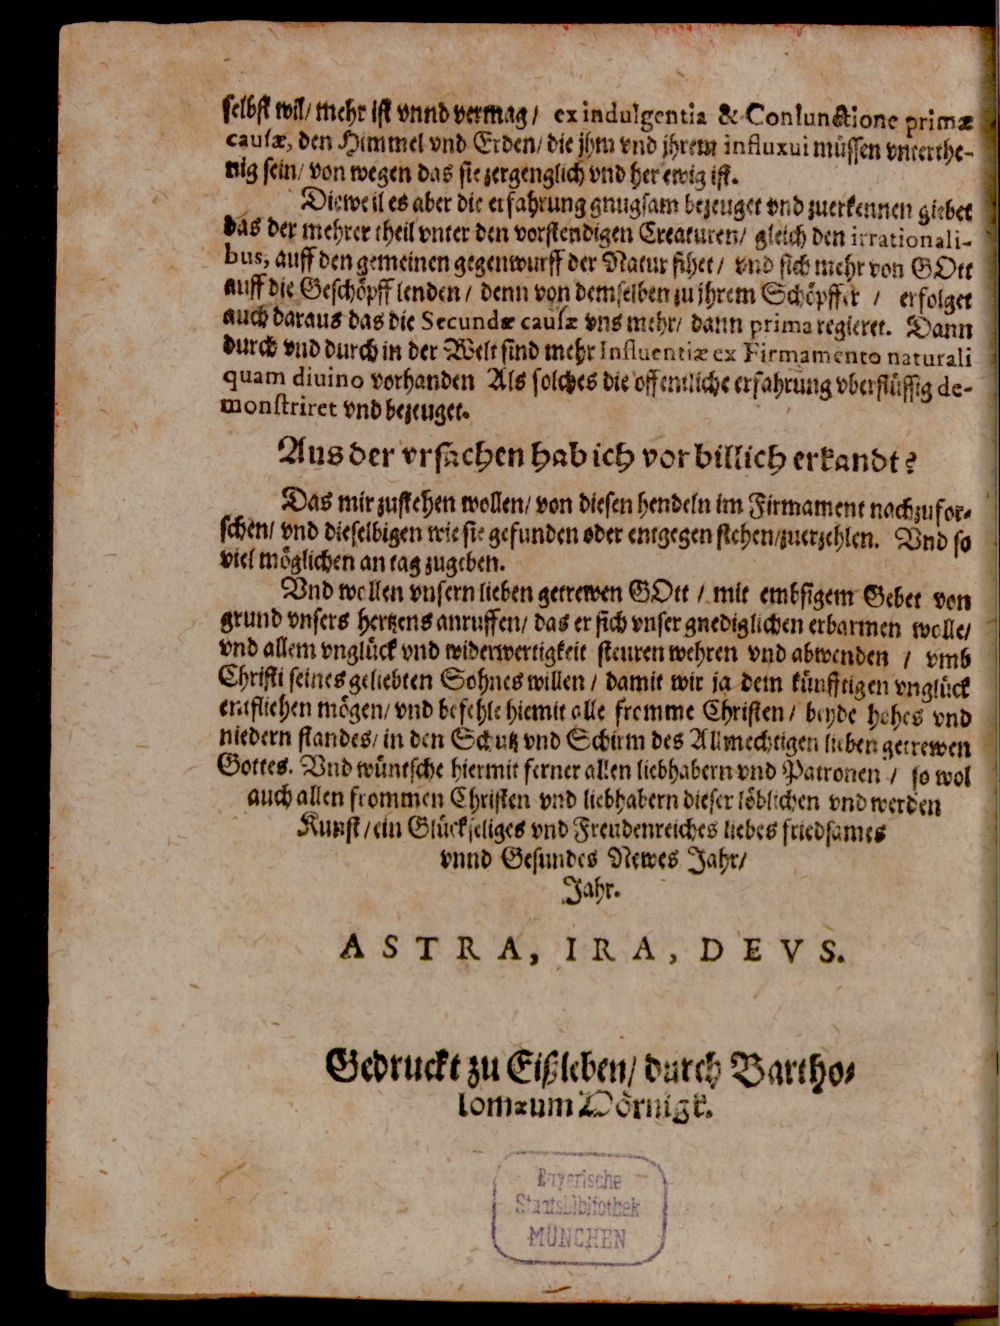 selbst wil/ mehr ist vnnd vermag/ ex indulgentia & Coniunctione primæ
causæ, den Himmel vnd Erden/ die jhm vnd jhrem influxui müssen vnterthe-
nig sein/ von wegen das sie zergenglich vnd her ewig ist.
Dieweil es aber die erfahrung gnugsam bezeuget vnd zuerkennen giebet
das der mehrer theil vnter den vorstendigen Creaturen/ gleich den irrationali-
bus, auff den gemeinen gegenwurff der Natur sihet/ vnd sich mehr von GOtt
auff die Geschöpff lenden/ denn von demselben zu jhrem Schöpffer / erfolget
auch daraus das die Secundæ causæ vns mehr/ dann prima regieret. Dann
durch vnd durch in der Welt sind mehr Influentiæ ex Firmamento naturali
quam diuino vorhanden Als solches die offentliche erfahrung vberflüssig de-
monstriret vnd bezeuget.
Aus der vrsachen hab ich vor billich erkandt?
Das mir zustehen wollen/ von diesen hendeln im Firmament nachzufor-
schen/ vnd dieselbigen wie sie gefunden oder entgegen stehen/zuerzehlen. Vnd so
viel möglichen an tag zugeben.
Vnd wollen vnsern lieben getrewen GOtt / mit embsigem Gebet von
grund vnsers hertzens anruffen/ das er sich vnser gnediglichen erbarmen wolle/
vnd allem vnglück vnd widerwertigkeit steuren wehren vnd abwenden / vmb
Christi seines geliebten Sohnes willen / damit wir ja dem künfftigen vnglück
entfliehen mögen/ vnd befehle hiemit alle fromme Christen/ beyde hohes vnd
niedern standes/ in den Schutz vnd Schirm des Allmechtigen lieben getrewen
Gottes. Vnd wüntsche hiermit ferner allen liebhabern vnd Patronen / so wol
auch allen frommen Christen vnd liebhabern dieser löblichen vnd werden
Kunst/ ein Glückseliges vnd Freudenreiches liebes friedsames
vnnd Gesundes Newes Jahr/
Jahr.
ASTRA, IRA, DEVS.
Gedruckt zu Eißleben/ durch Bartho-
lomæum Hörnigk.
Bayerische
Staatsbibliothek
MÜNCHEN